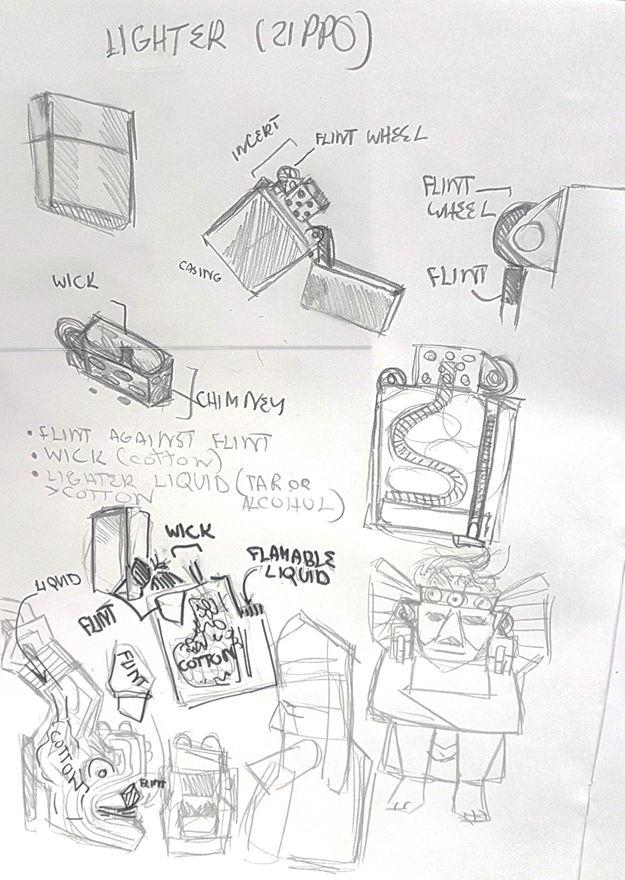 LIGHTER (ZIPPO)
INCERT
FLINT WHEEL
FLINT
WHEEL
CASING
FLINT
WICK
CHIMNEY
• FLINT AGAINST FLINT
• WICK (COTTON)
• LIGHTER LIQUID (TAR OR
> COTTON ALCOHOL)
WICK
FLAMABLE
LIQUID
LIQUID
FLINT
COTTON
FLINT
COTTON
FLINT